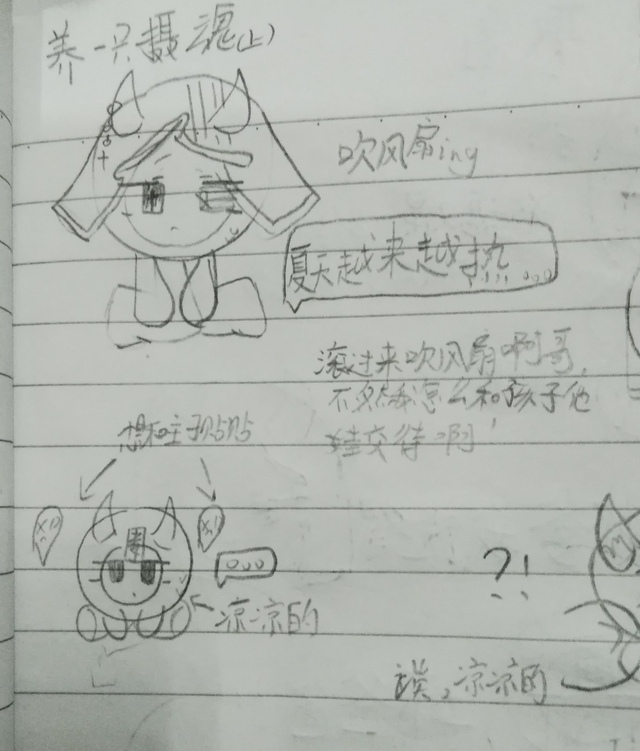 养一只摄魂(上)
吹风扇ing
夏天越来越热……
滚过来吹风扇啊哥,
不然我怎么和孩子他
娃交待啊!
想和主子贴贴
凉凉的
?!
凉凉的